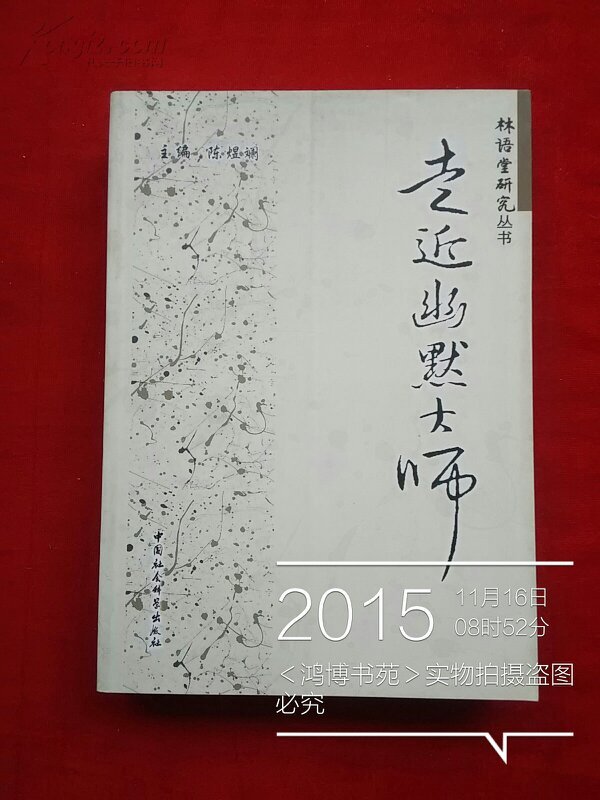 林语堂研究丛书
走近幽默大师
主编 陈煜斓
中国社会科学出版社
2015
11月16日
08时52分
<鸿博书苑>实物拍摄盗图
必究